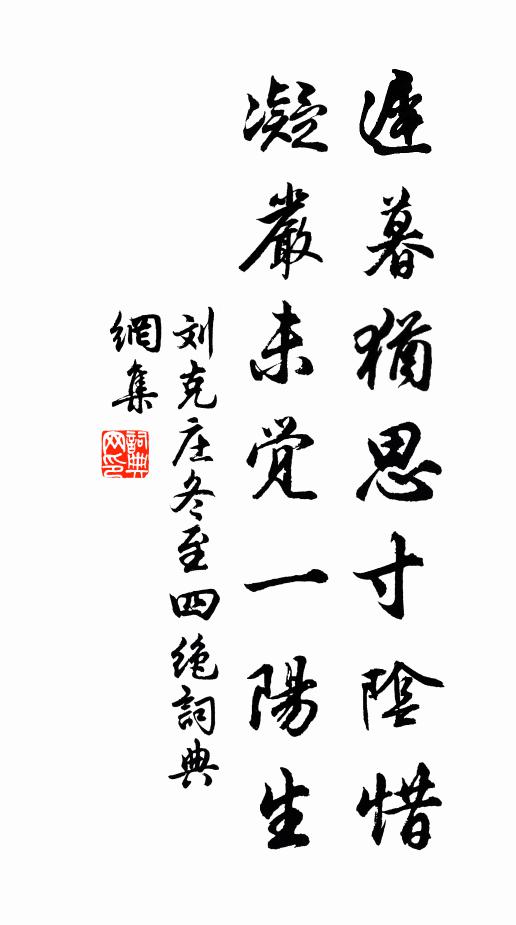 遲暮猶思寸陰惜
凝嚴未觉一陽生
刘克庄冬至四绝詞典
網集
詞典网印